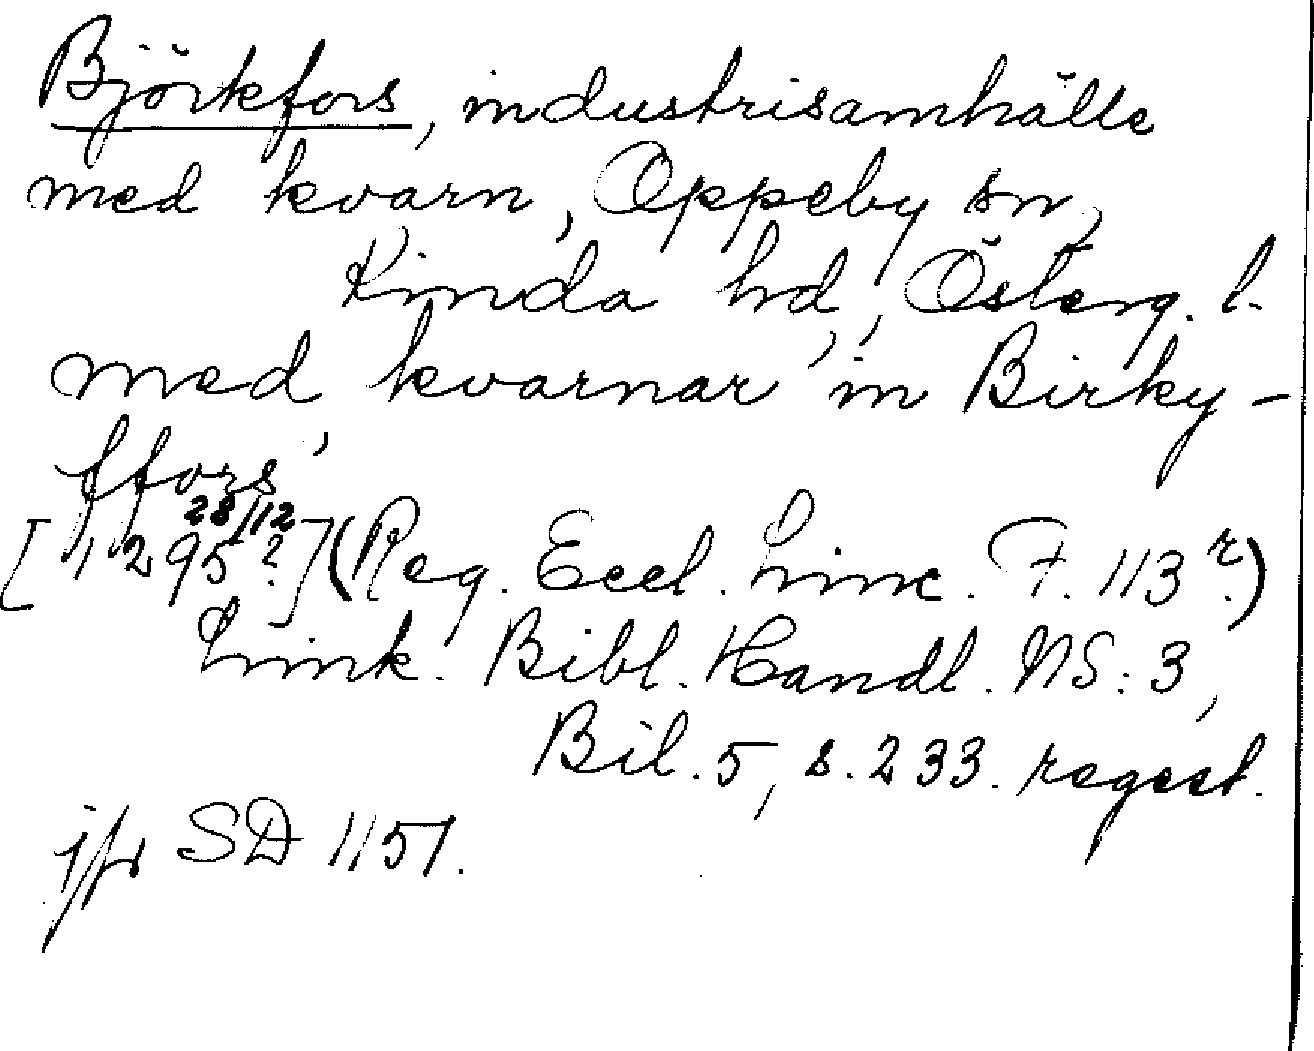 Björkfors, industrisamhälle
med kvarn, Oppeby sn,
Kinda hd, Österg. l.
med kvarnar, in Birky-
ffors,
28/12
[1295?] (Reg. Eccl. Linc. F. 113 r.)
Link. Bibl. Handl. NS: 3,
Bil. 5, s. 233. regest.
jfr SD 1151.